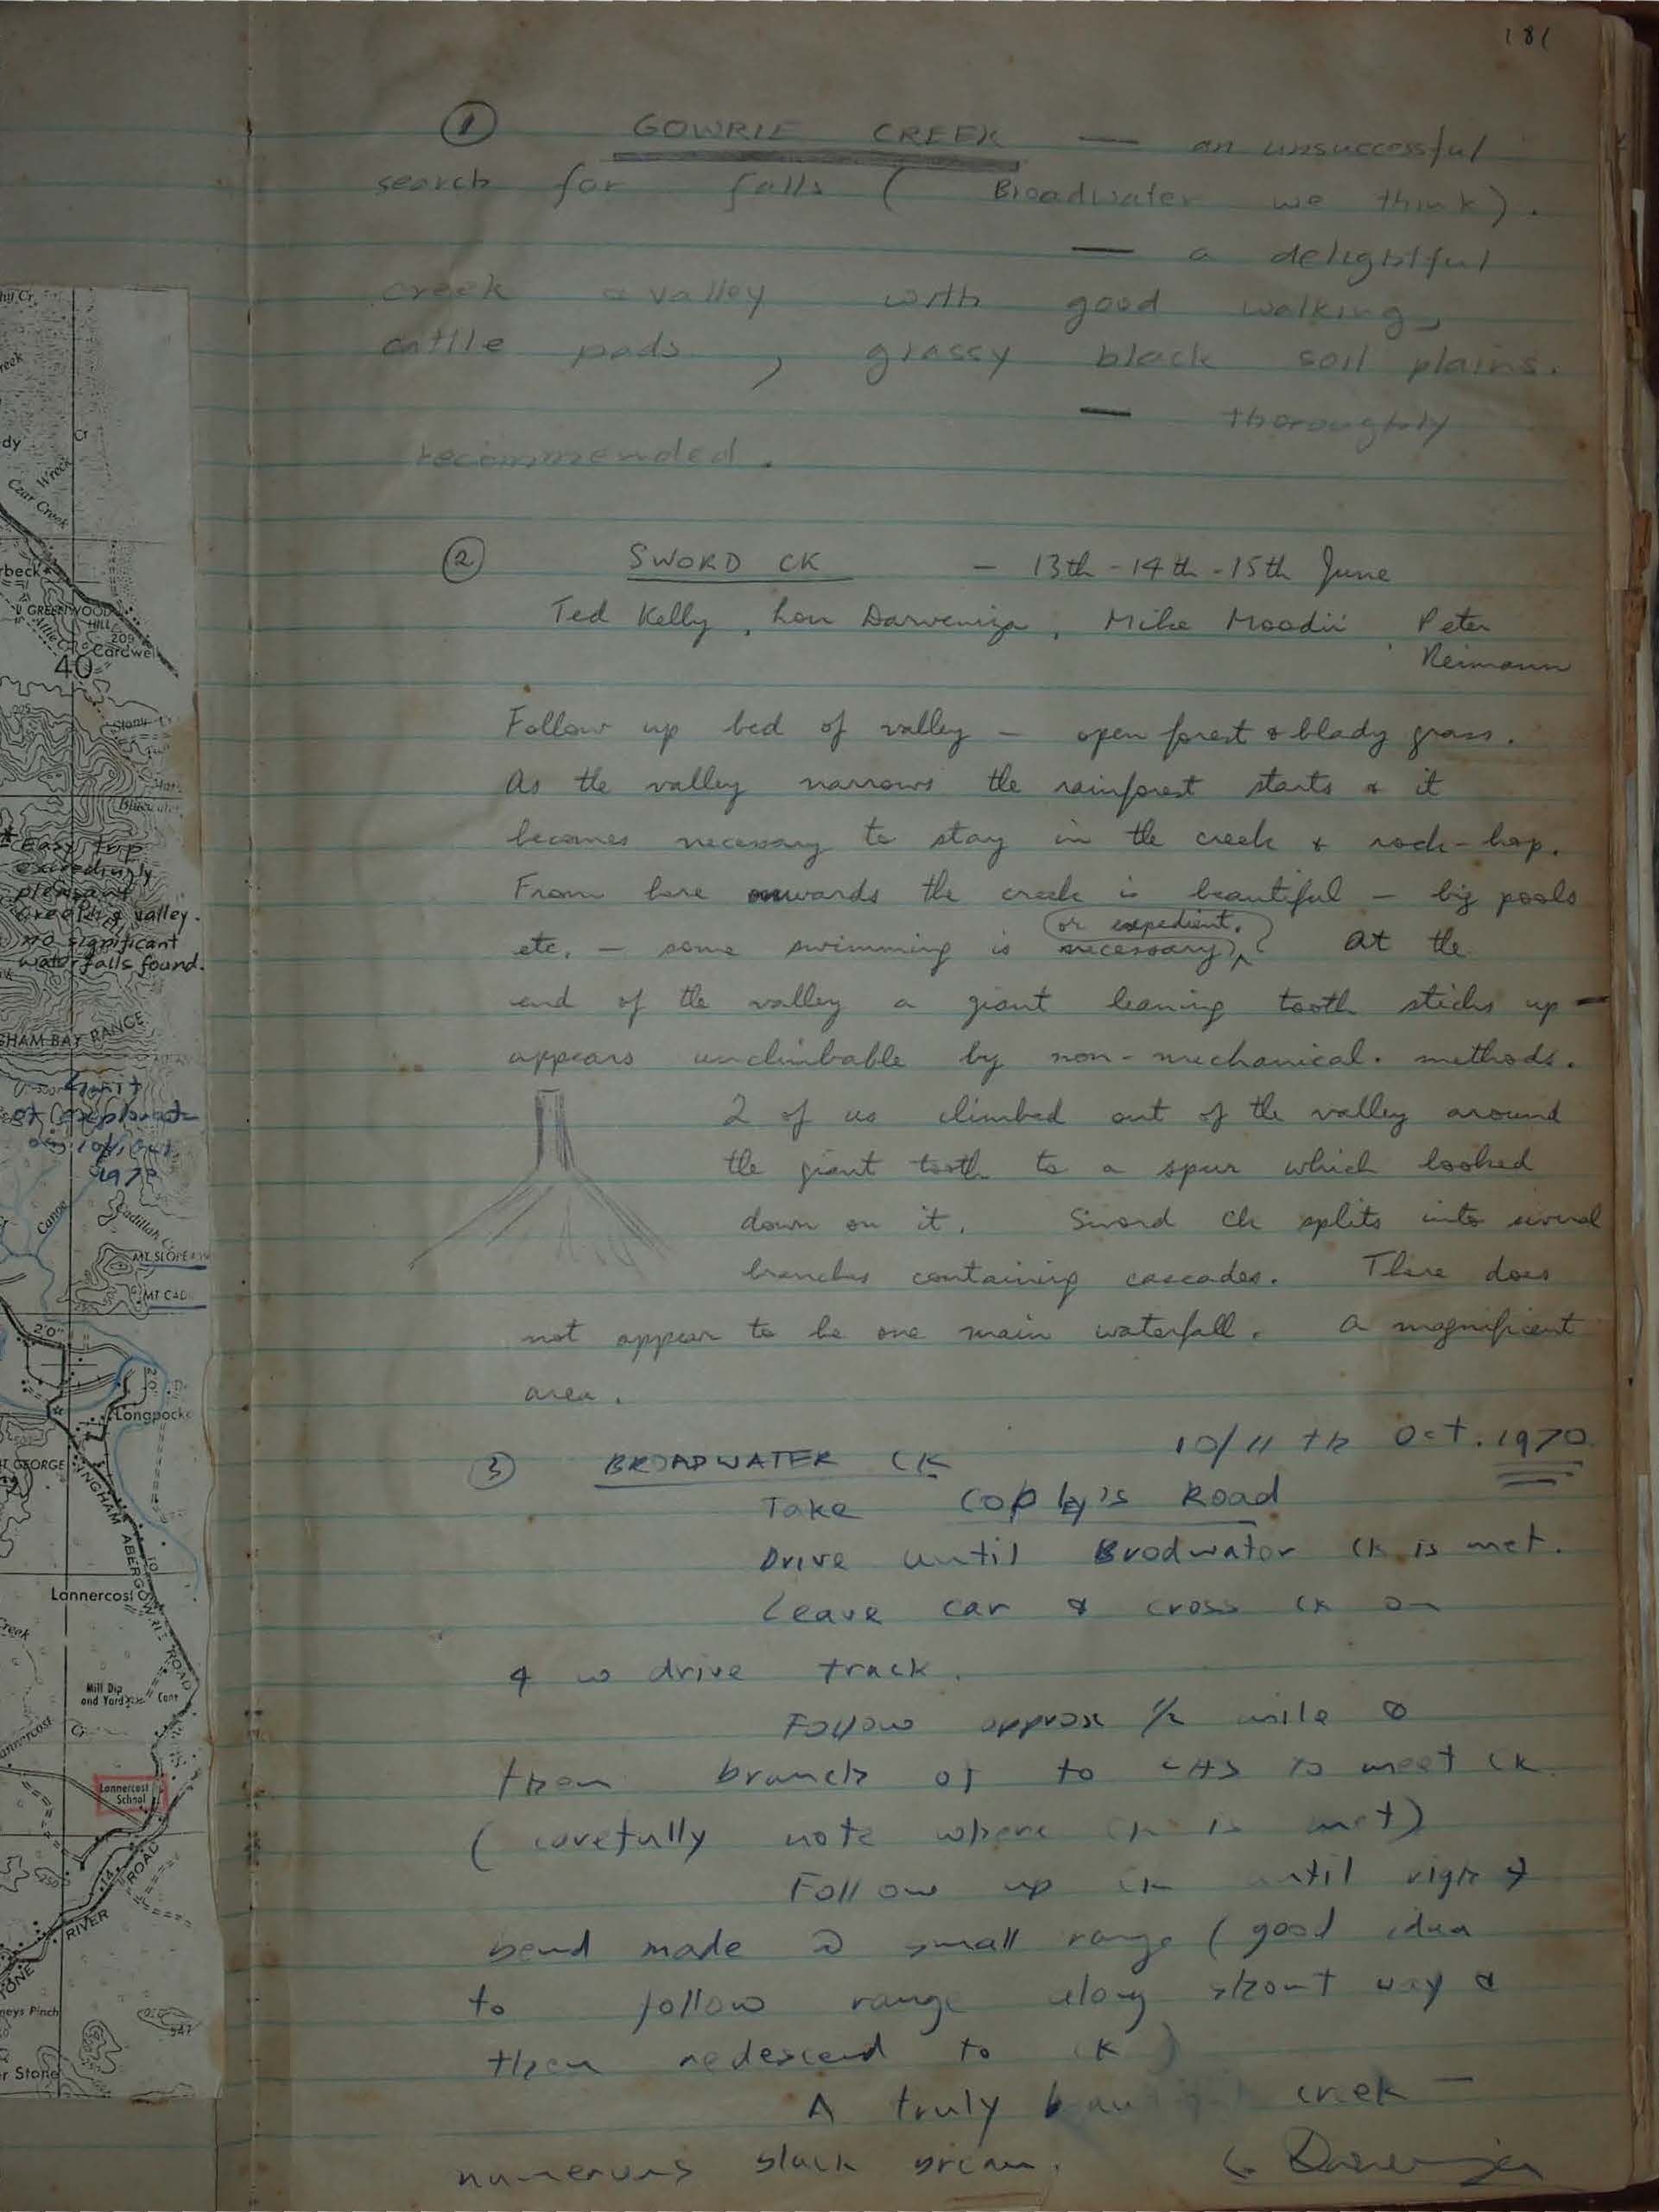 181
① GOWRIE CREEK — an unsuccessful
search for falls ( Broadwater we think ) .
— a delightful
creek & valley with good walking,
cattle pads , grassy black soil plains.
— thoroughly
recommended .
② SWORD CK - 13th - 14th - 15th June
Ted Kelly , Lou Darveniza , Mike Moodii , Peter
Reimann
Follow up bed of valley - open forest & blady grass .
As the valley narrows the rainforest starts & it
becomes necessary to stay in the creek & rock-hop.
From here onwards the creek is beautiful - big pools
or expedient.
etc. - some swimming is necessary) At the
end of the valley a giant leaning tooth sticks up -
appears unclimbable by non-mechanical. methods.
2 of us climbed out of the valley around
the giant tooth to a spur which looked
down on it. Sword Ck splits into several
branches containing cascades. There does
not appear to be one main waterfall. A magnificent
area .
③ BROADWATER CK 10/11 th Oct. 1970
Take Copley's Road
Drive until Brodwater Ck is met.
Leave car & cross ck on
4 w drive track .
Follow approx 1/2 mile &
then branch of to to meet ck
( carefully note where ck is met )
Follow up ck until right
bend made a small range ( good idea
to follow range along short way &
then redescend to ck )
A truly beautiful creek -
numerous black bream . L. Darveniza
Creek
Czar Creek
Wreck
Cr
GREENWOOD
HILL
209
Cardwell
40
Stony
* Easy trip
exceedingly
pleasant
creek & valley.
no significant
waterfalls found.
GHAM BAY RANGE
1972
Canoe
Cadillah
MT. SLOPE
MT CAD
2'0"
Longpocke
T GEORGE
INGHAM ABERGOWRIE ROAD
Lannercost
Creek
Mill Dip
and Yard
Lannercost
Cr
Lannercost
School
250
14
RIVER ROAD
STONE
neys Pinch
547
r Stone